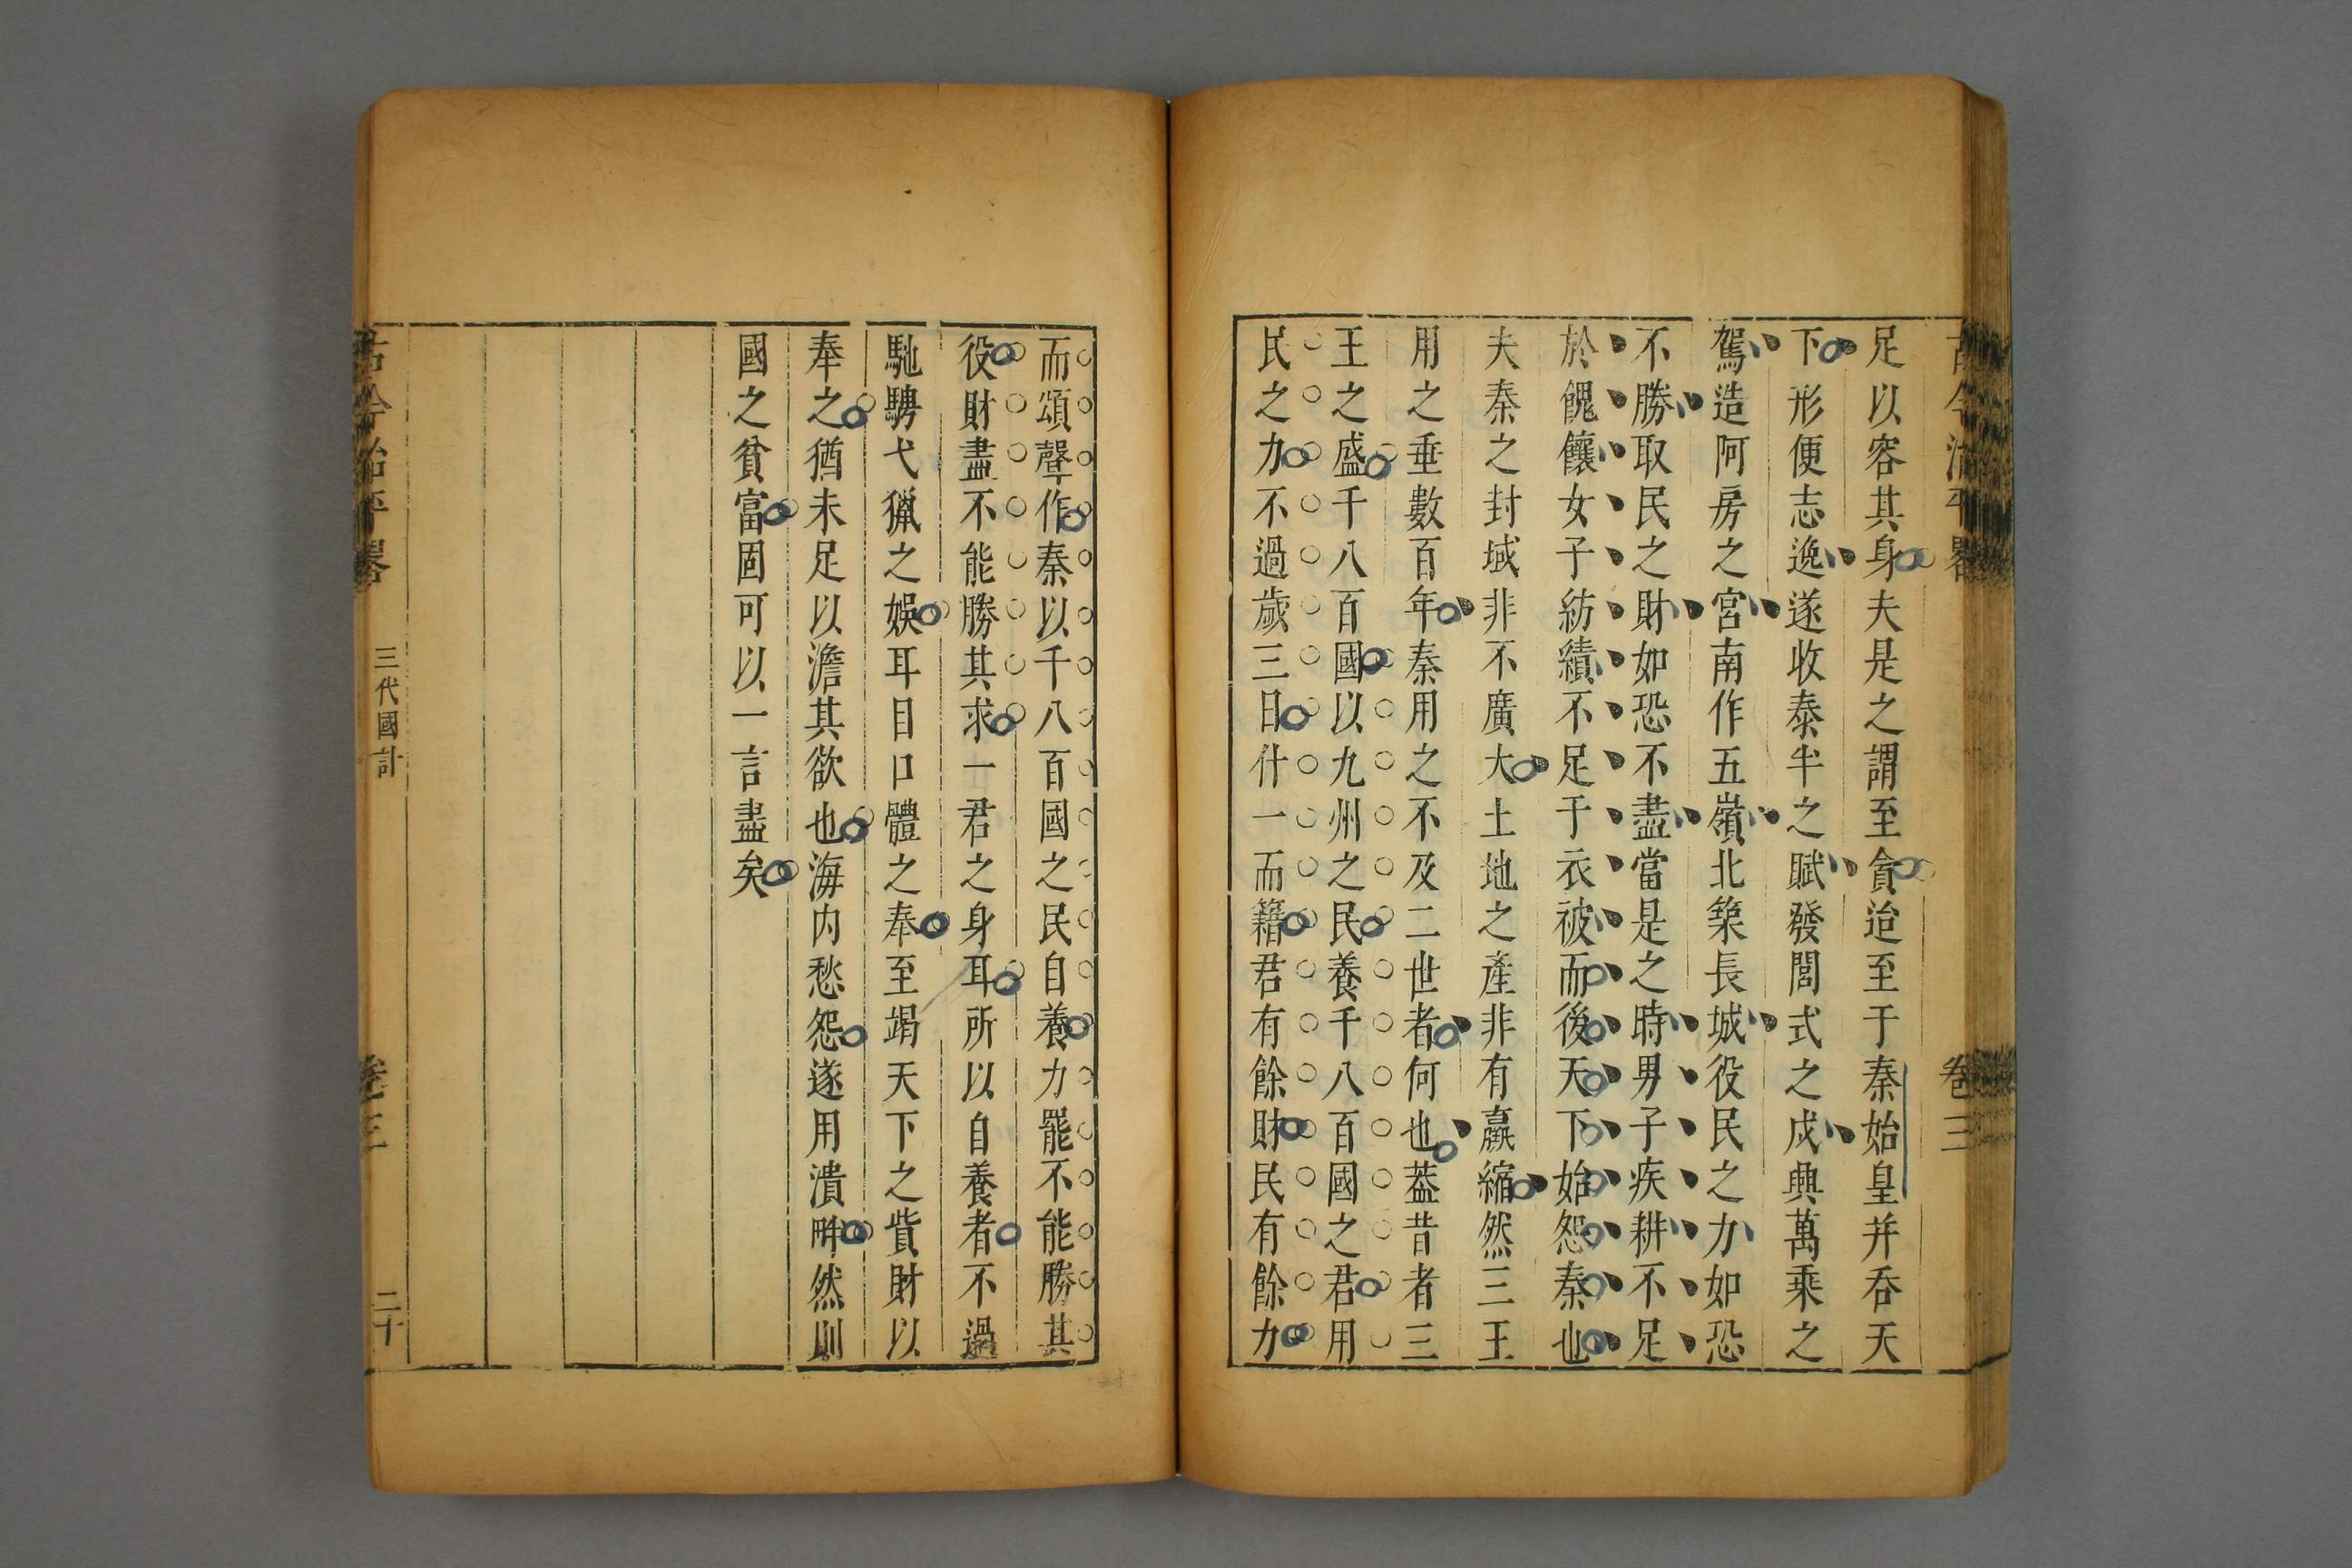 足以容其身夫是之謂至貪迨至于秦始皇并吞天
下形便志逸遂收泰半之賦發閭式之戍興萬乘之
駕造阿房之宮南作五嶺北築長城役民之力如恐
不勝取民之財如恐不盡當是之時男子疾耕不足
於餽饟女子紡績不足于衣被而後天下始怨秦也
夫秦之封域非不廣大土地之產非有嬴縮然三王
用之垂數百年秦用之不及二世者何也葢昔者三
王之盛千八百國以九州之民養千八百國之君用
民之力不過歲三日什一而籍君有餘財民有餘力
而頌聲作秦以千八百國之民自養力罷不能勝其
役財盡不能勝其求一君之身耳所以自養者不過
馳騁弋獵之娛耳目口體之奉至竭天下之貲財以
奉之猶未足以澹其欲也海内愁怨遂用潰畔然則
國之貧富固可以一言盡矣
三代國計
卷三
二十
古今治平畧
卷三